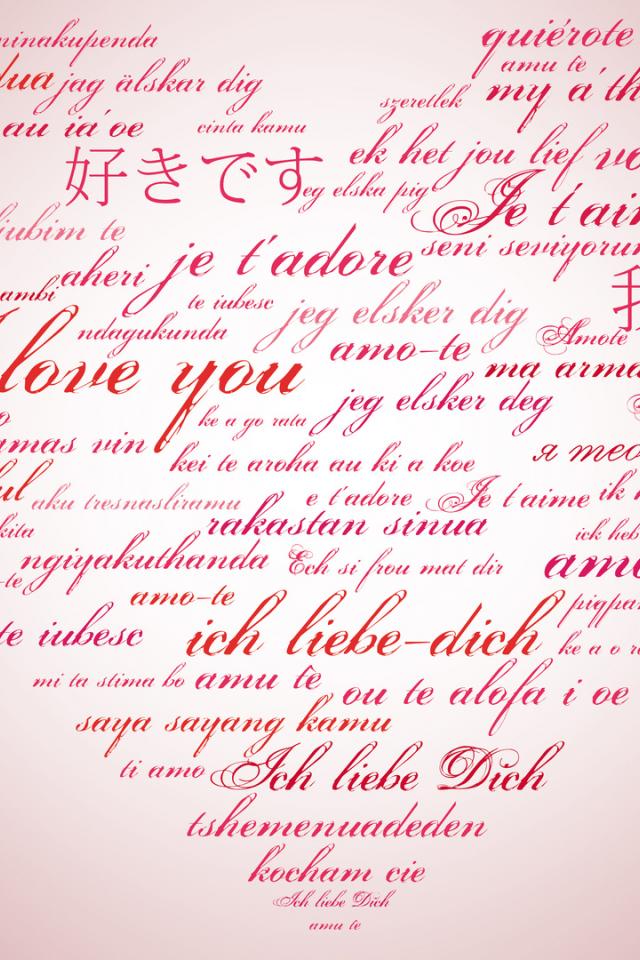 ninakupenda
quiérote
dua jag älskar dig
amu te
szeretlek my a' th
au ia'oe cinta kamu
ek het jou lief vo
好きです eg elska pig
Je t'aim
ljubim te
je t'adore seni seviyorum
aheri
ambi te iubesc jeg elsker dig
我
ndagukunda amo-te Amote
love you ma arma
jeg elsker deg
ke a go rata
amas vin
kei te aroha au ki a koe
я
ul aku tresnasliramu e t'adore Je t'aime ik
kita rakastan sinua ick heb
ngiyakuthanda Ech si frou mat dir amo
-te amo-te
te iubesc ich liebe-dich ke a o
mi ta stima bo amu tê ou te alofa i oe
saya sayang kamu
ti amo Ich liebe Dich
tshemenuadeden
kocham cie
Ich liebe Dich
amu te